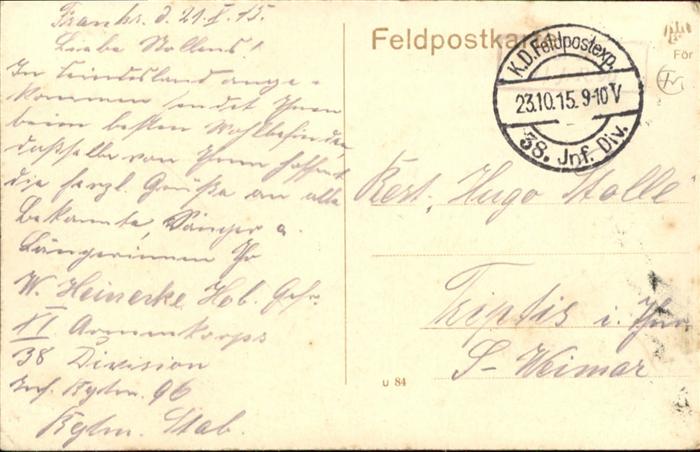 Frankr. d. 21. X. 15.
Liebe Stollens!
In Feindesland ange-
kommen sendet Ihnen
beim besten Wohlbefinden,
dasselbe von Ihnen hoffend
die herzl. Grüße an alle
Bekannte, Sänger u.
Sängerinnen Ihr
W. Heinecke Hob. Gefr.
XI Armeekorps
38 Division
Inf. Rgtm. 96
Rgtm. Stab.
Feldpostkarte
K.D. Feldpostexp.
23.10.15. 9-10 V
38. Jnf. Div.
För
Rest. "Hugo Stolle"
Triptis i. Thür
S-Weimar
U 84